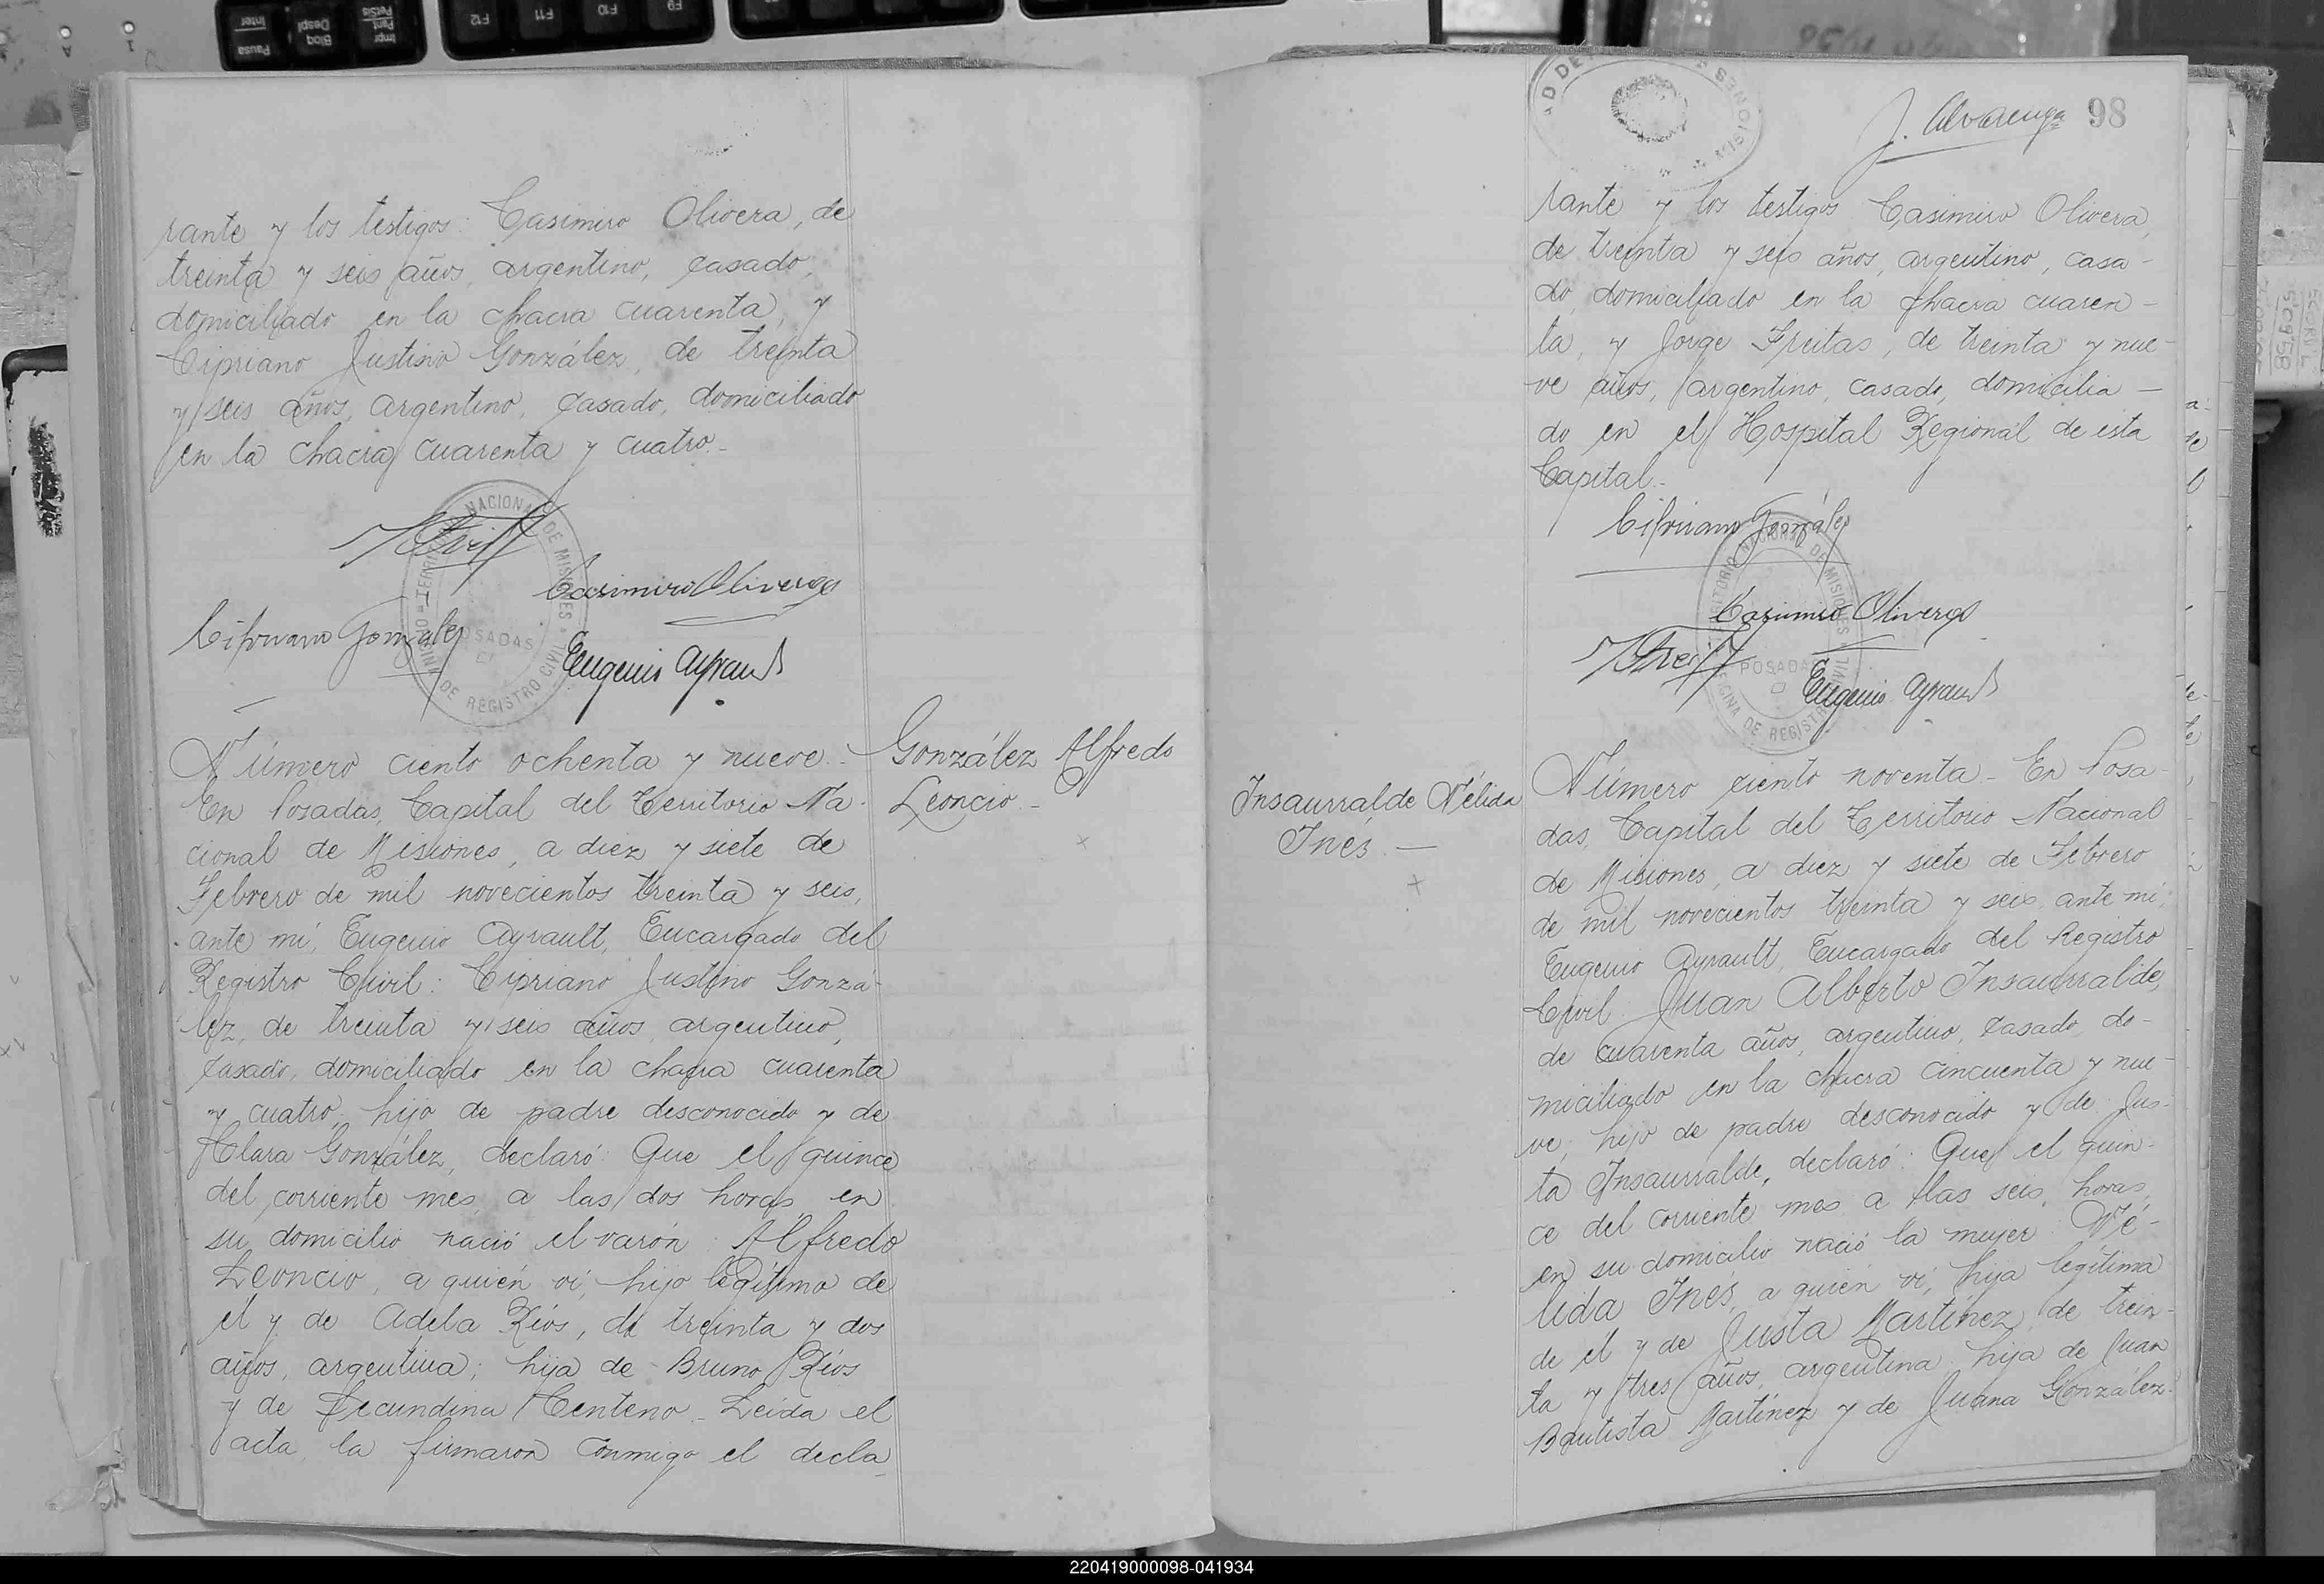 rante y los testigos: Casimiro Olivera, de
treinta y seis años, argentino, casado,
domiciliado en la chacra cuarenta, y
Cipriano Justino González, de treinta
y seis años, argentino, casado, domiciliado
en la chacra cuarenta y cuatro.-
Casimiro Olivera
Cipriano González
Eugenio Ayrault
Número ciento ochenta y nueve.-
En Posadas, Capital del Territorio Na-
cional de Misiones, a diez y siete de
Febrero de mil novecientos treinta y seis,
ante mí, Eugenio Ayrault, Encargado del
Registro Civil: Cipriano Justino Gonzá-
lez, de treinta y seis años, argentino,
casado, domiciliado en la chacra cuarenta
y cuatro; hijo de padre desconocido y de
Clara González, declaró: Que el quince
del corriente mes, a las dos horas, en
su domicilio nació el varón: Alfredo
Leoncio, a quién ví, hijo legítimo de
él y de Adela Ríos, de treinta y dos
años, argentina; hija de Bruno Ríos
y de Secundina Centeno.- Leida el
acta, la firmaron conmigo el decla-
González Alfredo
Leoncio.-
J. Alvarenga 98
rante y los testigos Casimiro Olivera,
de treinta y seis años, argentino, casa-
do, domiciliado en la chacra cuaren-
ta, y Jorge Freitas, de treinta y nue-
ve años, argentino, casado, domicilia-
do en el Hospital Regional de esta
Capital.-
Cipriano González
Casimiro Olivera
Eugenio Ayrault
Insaurralde Nélida
Inés.-
Número ciento noventa.- En Posa-
das, Capital del Territorio Nacional
de Misiones, a diez y siete de Febrero
de mil novecientos treinta y seis, ante mí,
Eugenio Ayrault, Encargado del Registro
Civil: Juan Alberto Insaurralde,
de cuarenta años, argentino, casado, do-
miciliado en la chacra cincuenta y nue-
ve; hijo de padre desconocido y de Jus-
ta Insaurralde, declaró: Que el quin-
ce del corriente mes a las seis horas,
en su domicilio nació la mujer: Né-
lida Inés, a quién ví, hija legítima
de él y de Justa Martínez, de trein-
ta y tres años, argentina, hija de Juan
Bautista Martínez y de Juana González.-
220419000098-041934